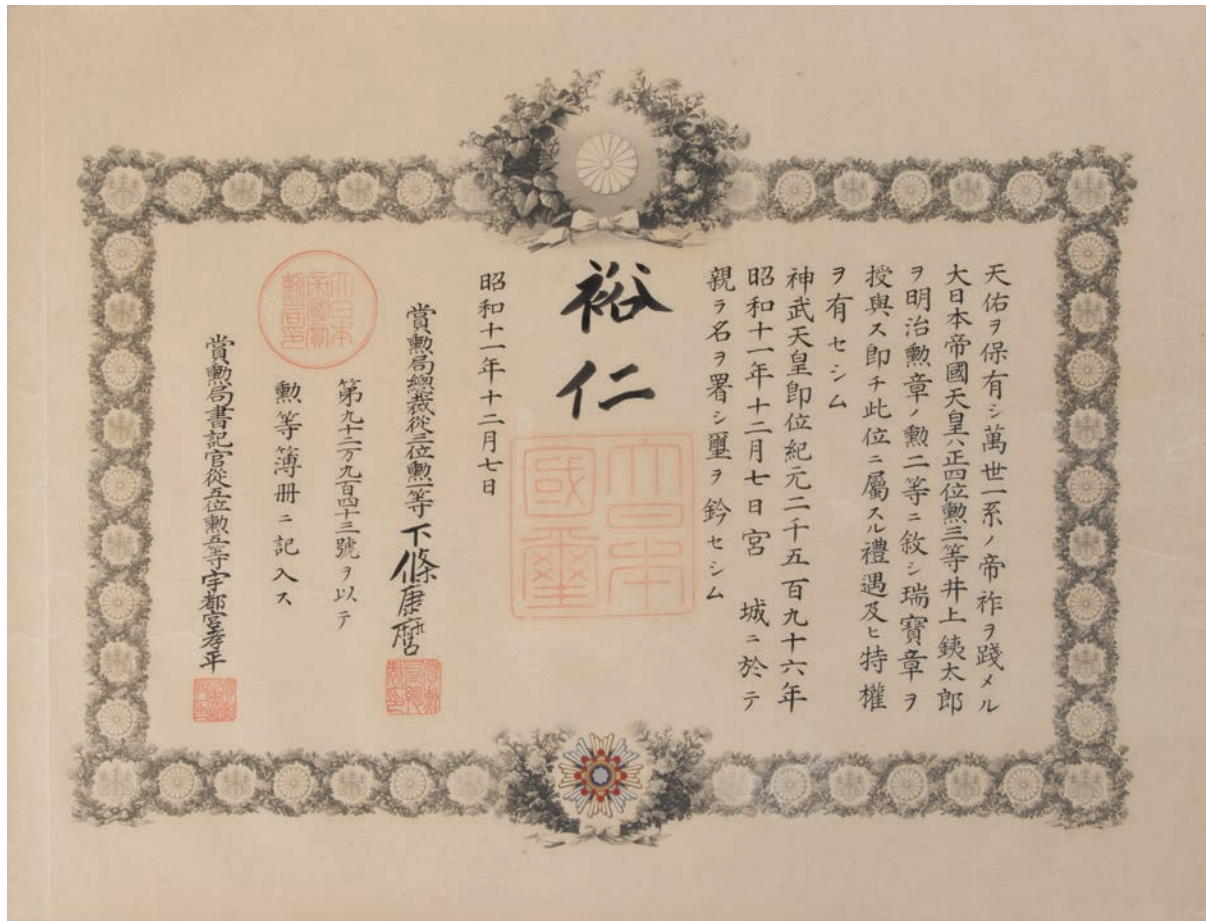 天佑ヲ保有シ萬世一系ノ帝祚ヲ踐メル
大日本帝國天皇ハ正四位勲三等井上鋳太郎
ヲ明治勲章ノ勲二等ニ敘シ瑞寶章ヲ
授與ス即チ此位ニ屬スル禮遇及ヒ特權
ヲ有セシム
神武天皇即位紀元二千五百九十六年
昭和十一年十二月七日宮城ニ於テ
親ラ名ヲ署シ璽ヲ鈐セシム
裕仁
大日本國璽
昭和十一年十二月七日
賞勲局總裁從三位勲一等下條康麿
第九十二万九百四十三號ヲ以テ
勲等簿册ニ記入ス
大日本帝國賞勲局印
賞勲局書記官從五位勲五等宇都宮孝平